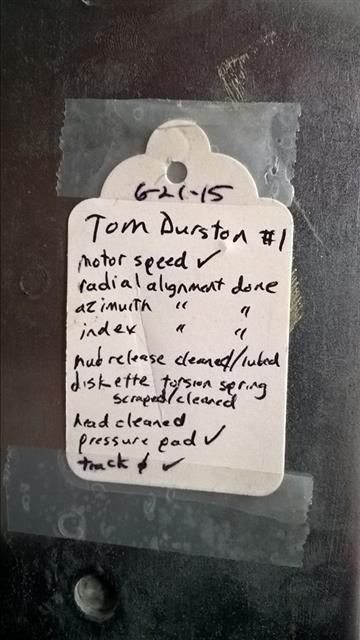 6-21-15
Tom Durston #1
motor speed ✓
radial alignment done
azimuth " "
index " "
hub release cleaned/lubed
diskette torsion spring
scraped/cleaned
head cleaned
pressure pad ✓
track ϕ ✓